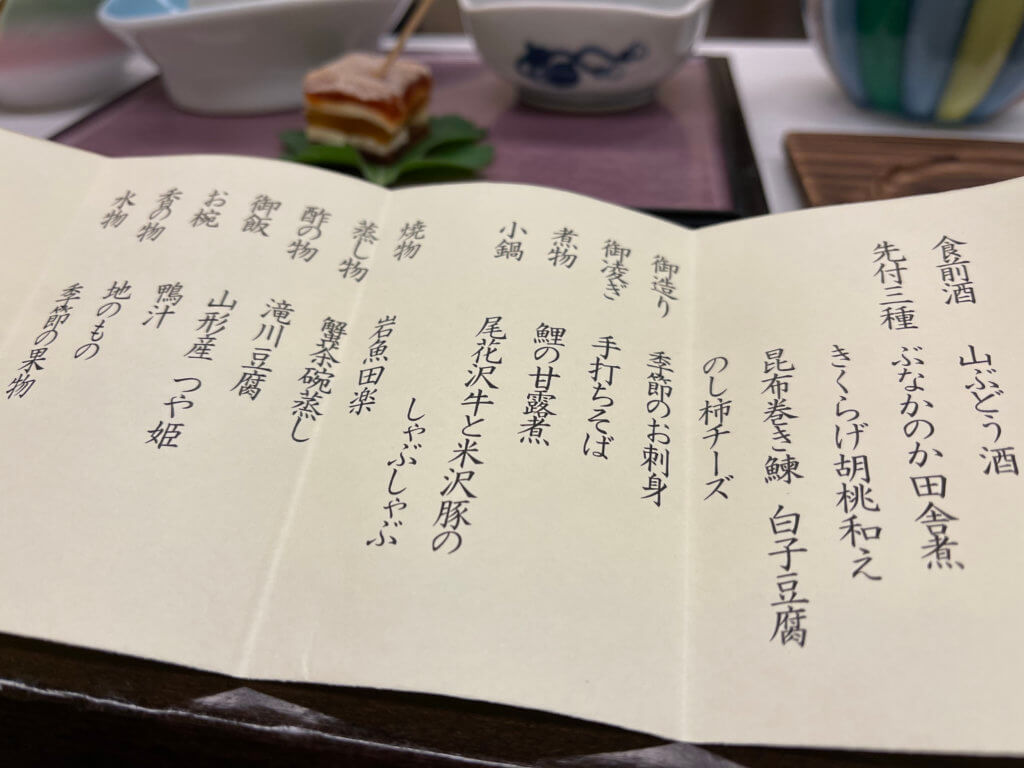 食前酒 山ぶどう酒
先付三種 ぶなかのか田舎煮
きくらげ胡桃和え
昆布巻き鰊 白子豆腐
のし柿チーズ
御造り 季節のお刺身
御凌ぎ 手打ちそば
煮物 鯉の甘露煮
小鍋 尾花沢牛と米沢豚の
しゃぶしゃぶ
焼物 岩魚田楽
蒸し物 蟹茶碗蒸し
酢の物 滝川豆腐
御飯 山形産 つや姫
お椀 鴨汁
香の物 地のもの
水物 季節の果物